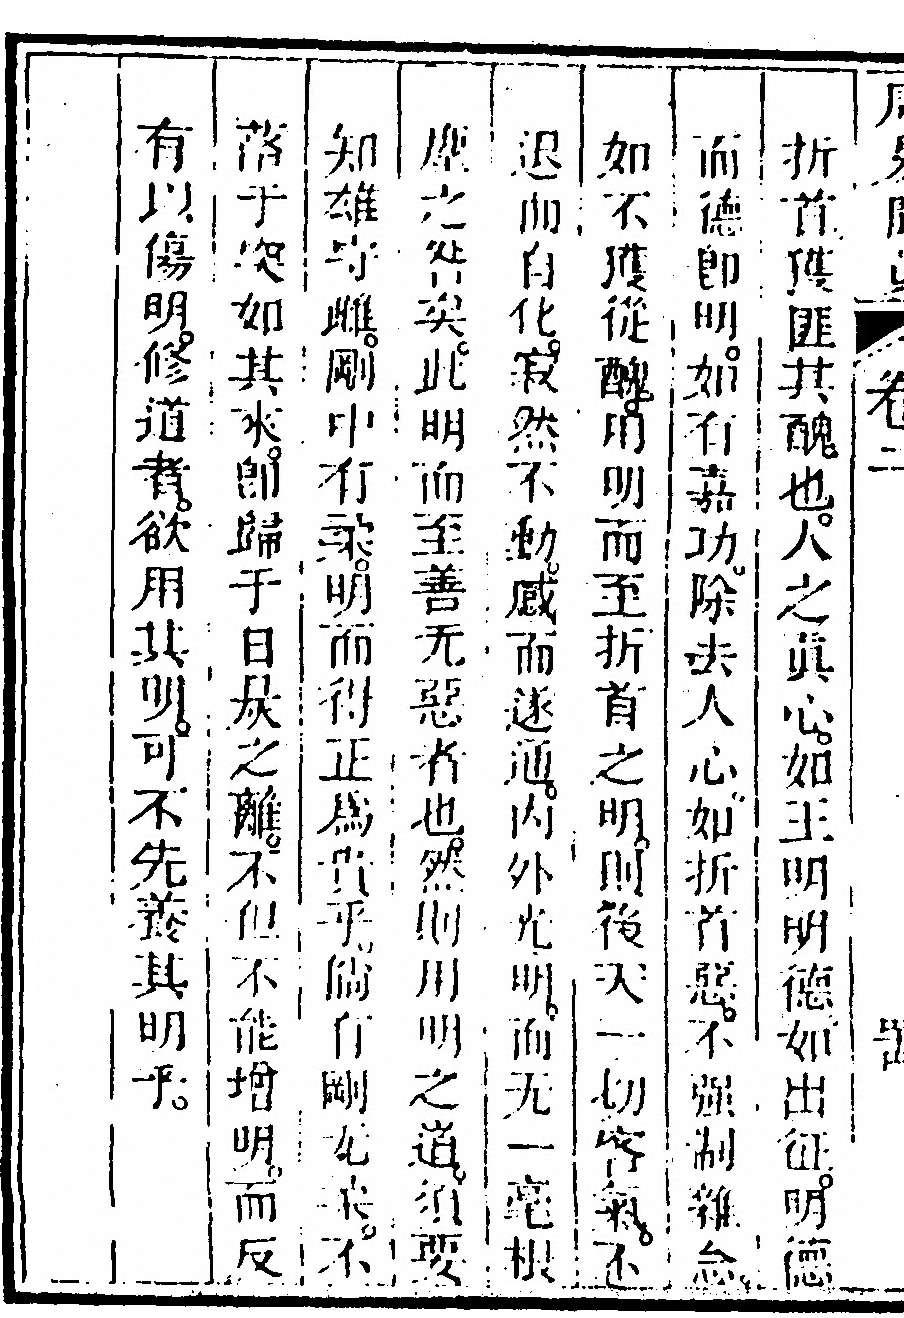 周易闡真 卷二 離
折首獲匪其醜也。人之真心。如王明明德如出征。明德
而德即明。如有嘉功。除去人心。如折首惡。不強制雜念
如不獲從醜。用明而至折首之明。則後天一切客氣。不
退而自化。寂然不動。感而遂通。內外光明。而无一毫根
塵之咎矣。此明而至善无惡者也。然則用明之道。須要
知雄守雌。剛中有柔。明而得正為貴乎。倘有剛无柔。不
落于突如其來。即歸于日昃之離。不但不能增明。而反
有以傷明。修道者。欲用其明。可不先養其明乎。